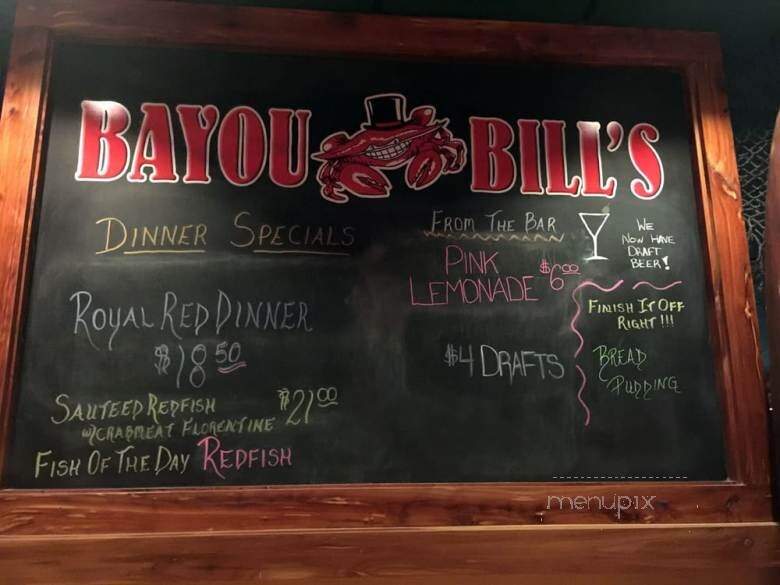 BAYOU BILL'S
DINNER SPECIALS
ROYAL RED DINNER
$18.50
SAUTEED REDFISH $21.00
W/CRABMEAT FLORENTINE
FISH OF THE DAY REDFISH
FROM THE BAR
PINK
LEMONADE $6.00
$4 DRAFTS
WE
NOW HAVE
DRAFT
BEER!
FINISH IT OFF
RIGHT!!!
BREAD
PUDDING
menupix